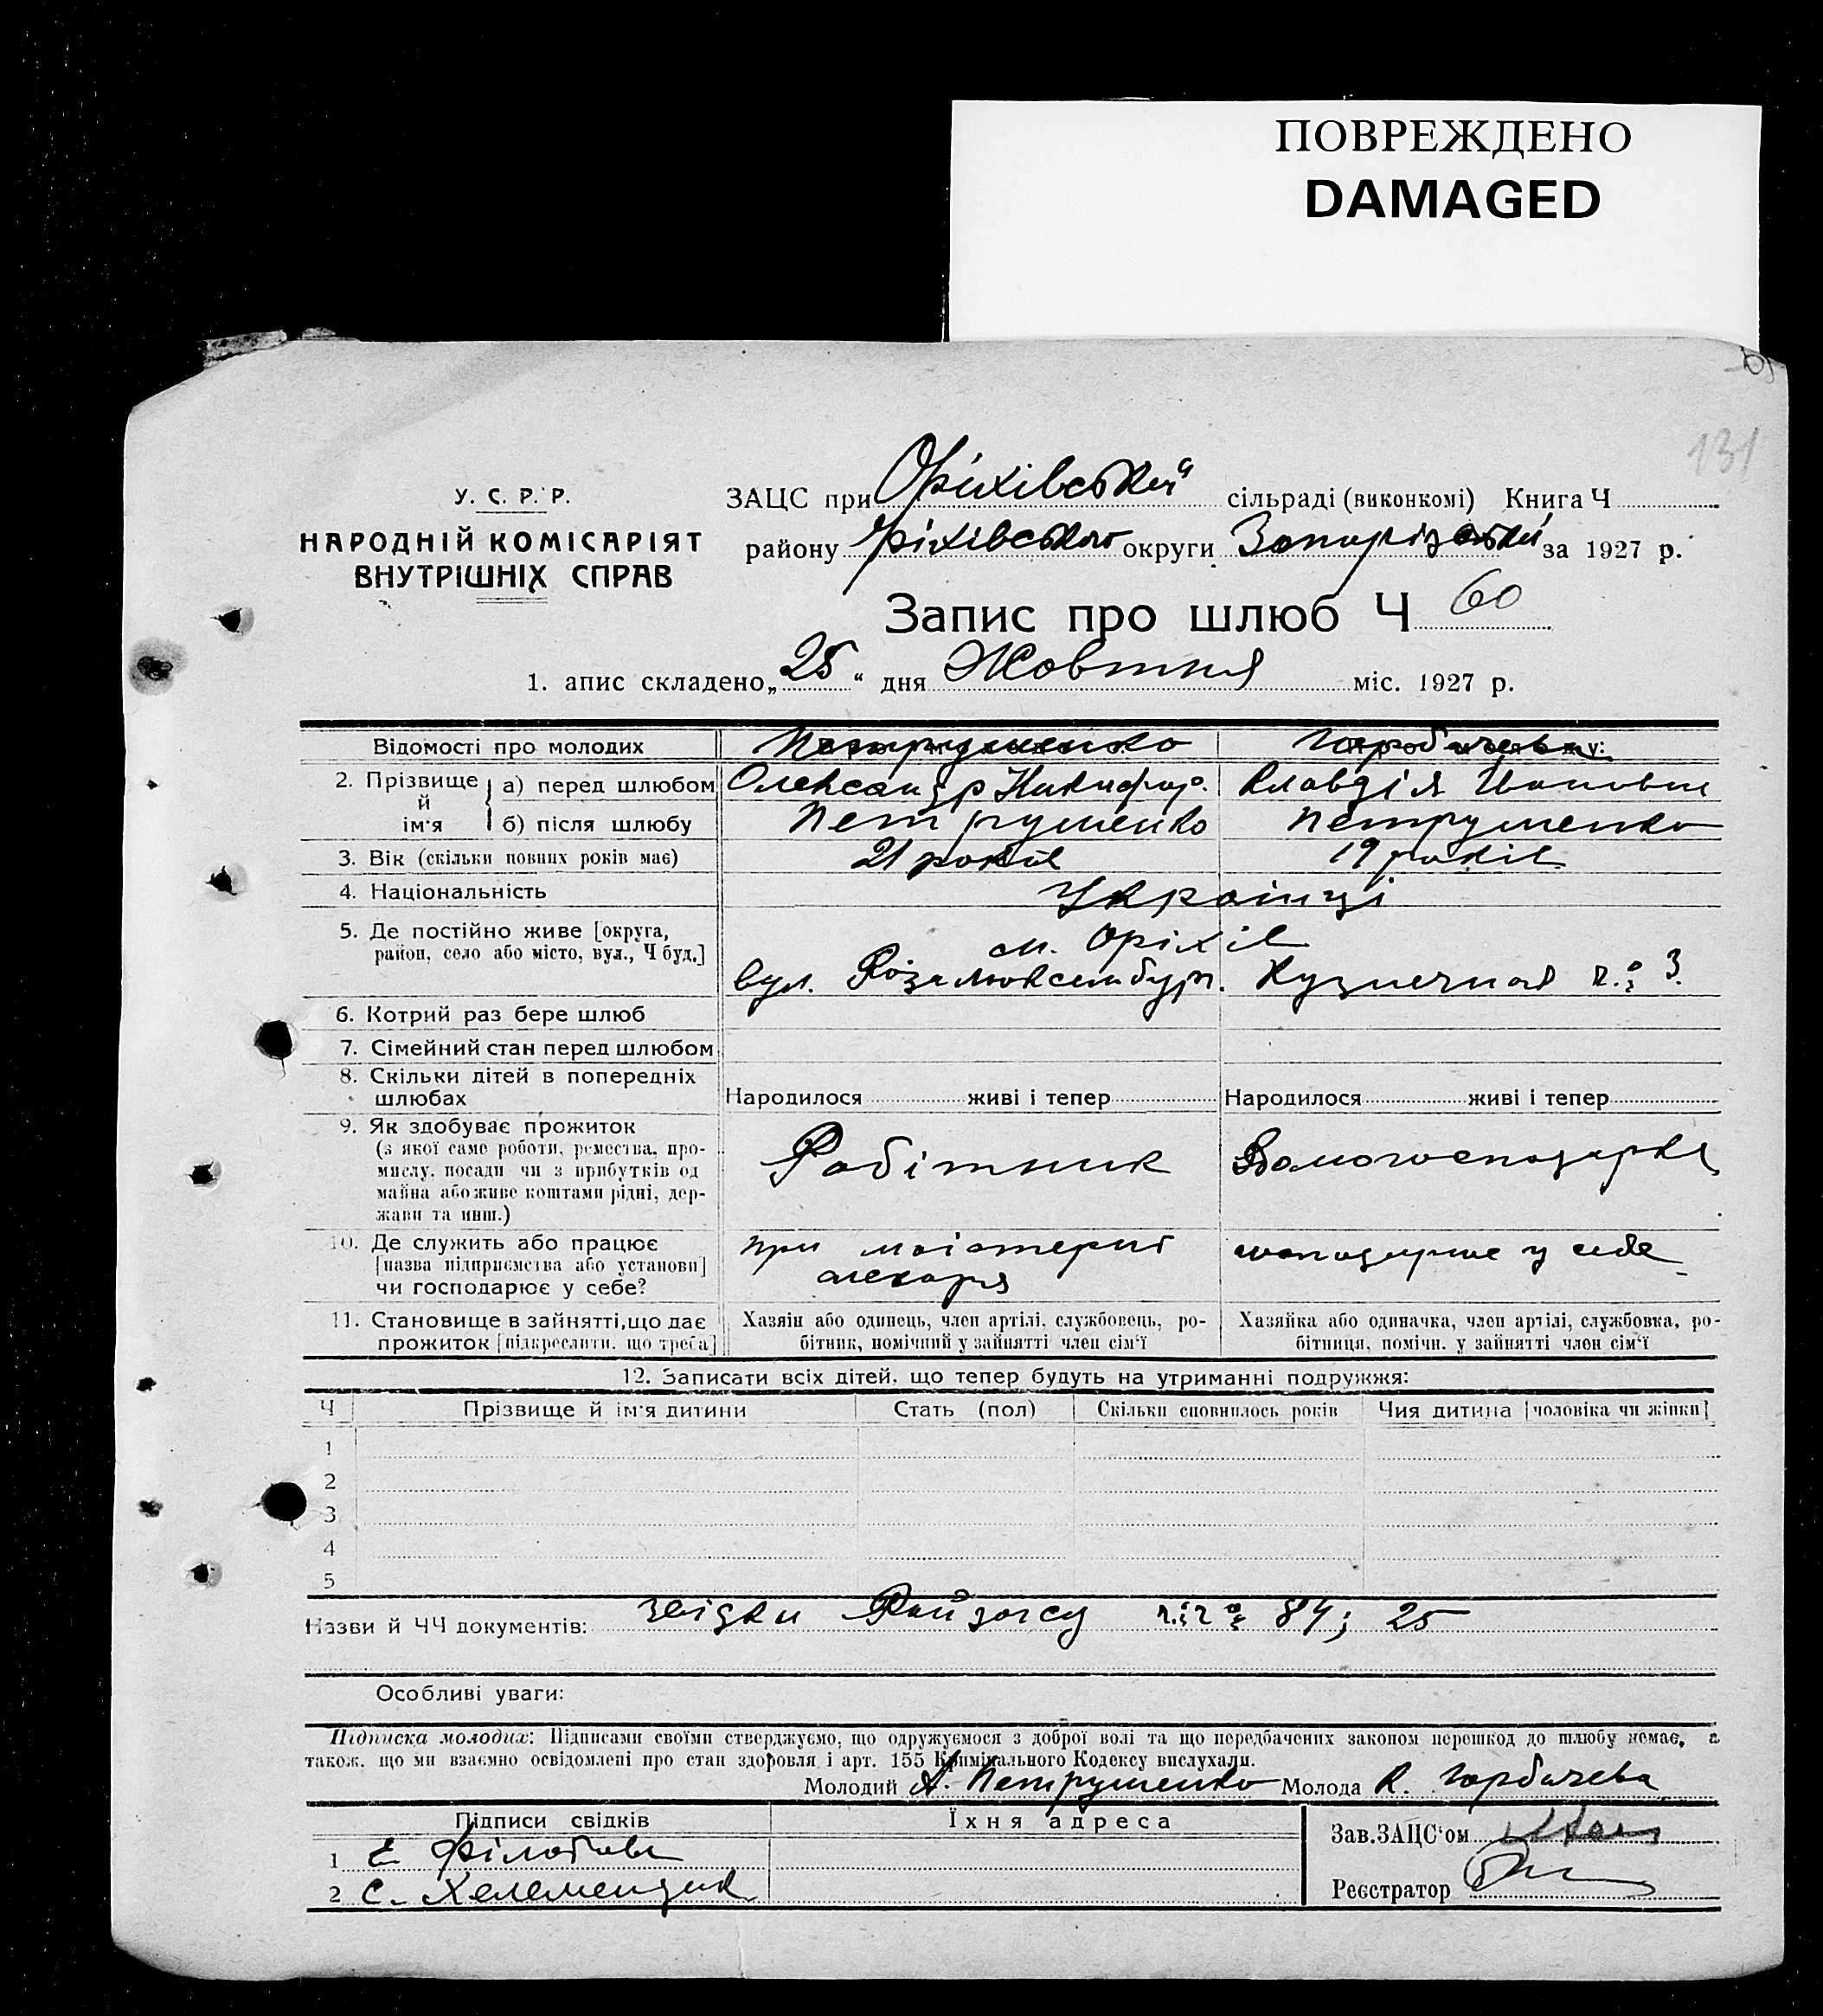 ПОВРЕЖДЕНО
DAMAGED
131
У. С. Р. Р.
НАРОДНІЙ КОМІСАРІЯТ
ВНУТРІШНІХ СПРАВ
ЗАЦС при Оріхівській сільраді (виконкомі) Книга Ч
району Оріхівського округи Запорізької за 1927 р.
Запис про шлюб Ч 60
1. апис складено „25“ дня Жовтня міс. 1927 р.
Відомості про молодих Петрушенко Горбачева
2. Прізвище й ім'я а) перед шлюбом Олександр Никифор. Клавдія Івановна
б) після шлюбу Петрушенко Петрушенко
3. Вік (скільки повних років має) 21 років 19 років
4. Національність Українці
5. Де постійно живе [округа, м. Оріхів
район, село або місто, вул., Ч буд.] вул. Рози Люксембург. Кузнечная 3.
6. Котрий раз бере шлюб
7. Сімейний стан перед шлюбом
8. Скільки дітей в попередніх
шлюбах Народилося живі і тепер Народилося живі і тепер
9. Як здобуває прожиток
(з якої саме роботи, ремества, про-
мислу, посади чи з прибутків од Робітник Домогосподарка
майна або живе коштами рідні, дер-
жави та инш.)
10. Де служить або працює при господарює у себе
[назва підприємства або установи]
чи господарює у себе?
11. Становище в зайнятті, що дає Хазяїн або одинець, член артілі, службовець, ро- Хазяйка або одиначка, член артілі, службовка, ро-
прожиток [підкреслити, що треба] бітник, помічний у зайнятті член сім'ї бітниця, помічн. у зайнятті член сім'ї
12. Записати всіх дітей, що тепер будуть на утриманні подружжя:
Ч Прізвище й ім'я дитини Стать (пол) Скільки сповнилось років Чия дитина [чоловіка чи жінки]
1
2
3
4
5
Назви й ЧЧ документів: звідки Райзагсу 84; 25
Особливі уваги:
Підписка молодих: Підписами своїми стверджуємо, що одружуємося з доброї волі та що передбачених законом перешкод до шлюбу немає, а
також, що ми взаємно освідомлені про стан здоров'я і арт. 155 Кримінального Кодексу вислухали.
Молодий А. Петрушенко Молода К. Горбачева
Підписи свідків Їхня адреса Зав.ЗАЦС'ом
1 Е
2 С.
Реєстратор